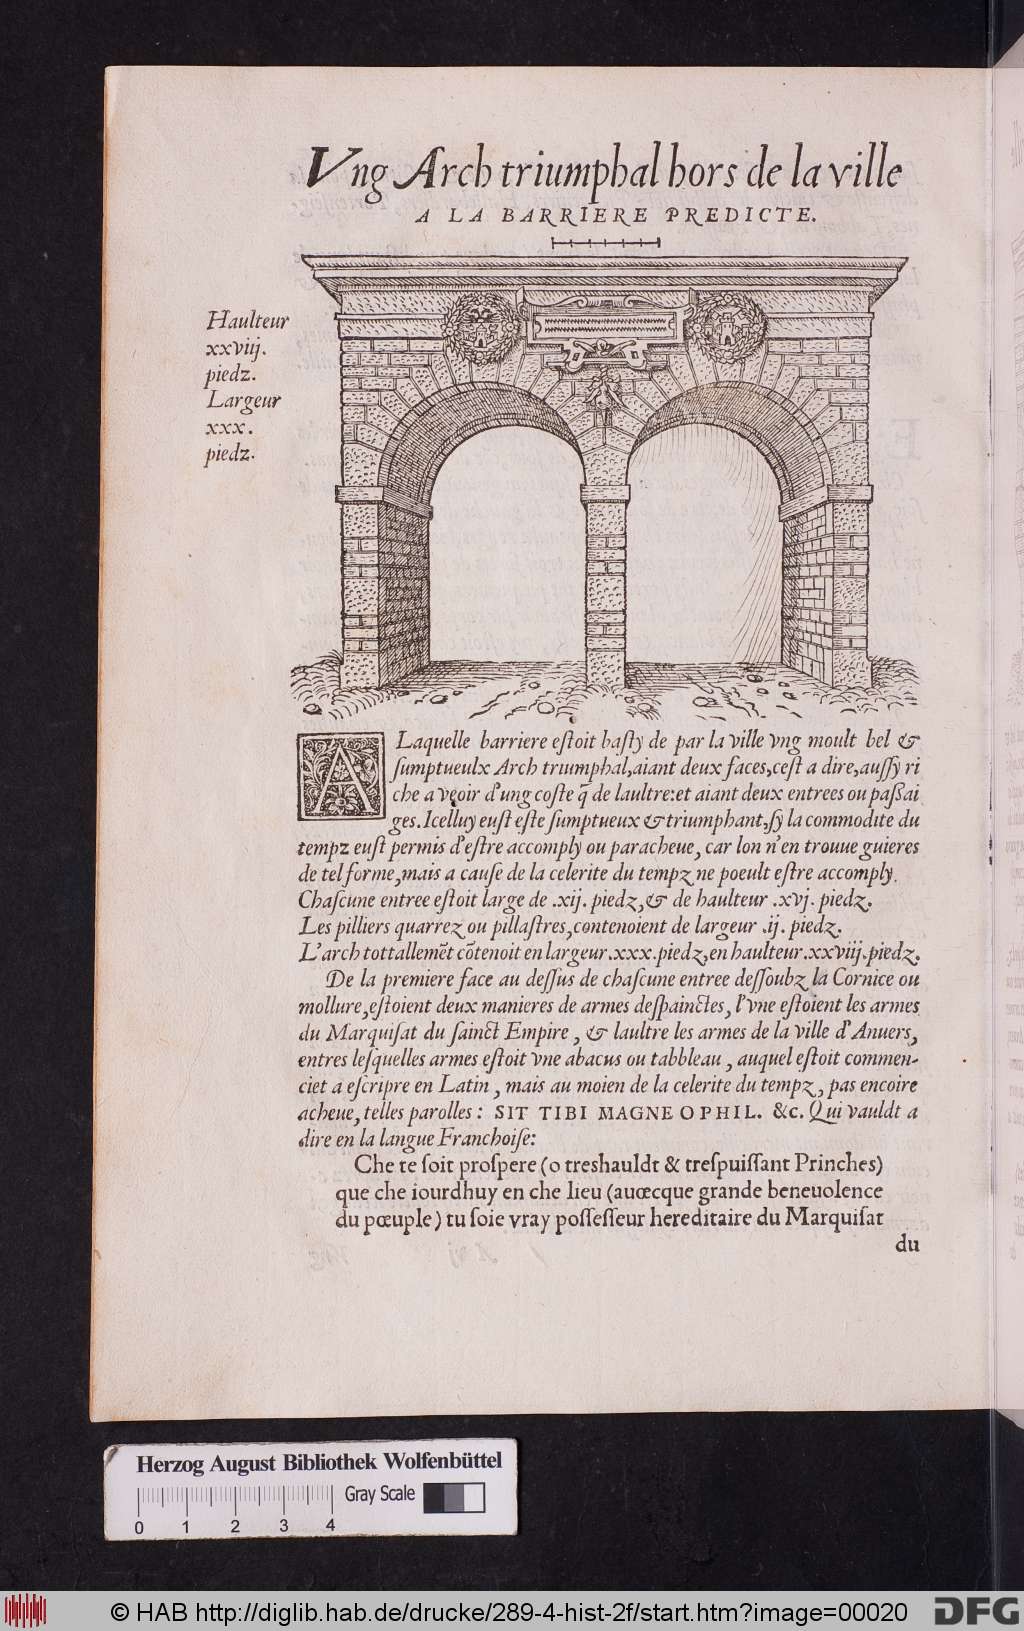 Vng Arch triumphal hors de la ville
A LA BARRIERE PREDICTE.
Haulteur
xxviij.
piedz.
Largeur
xxx.
piedz.
A Laquelle barriere eſtoit baſty de par la ville vng moult bel &
ſumptueulx Arch triumphal,aiant deux faces,ceſt a dire,auſſy ri
che a veoir d'ung coſte q̃ de laultre:et aiant deux entrees ou paßai
ges.Icelluy euſt eſte ſumptueux & triumphant,ſy la commodite du
tempz euſt permis d'eſtre accomply ou paracheue, car lon n'en trouue guieres
de tel forme,mais a cauſe de la celerite du tempz ne poeult eſtre accomply.
Chaſcune entree eſtoit large de .xij. piedz,& de haulteur .xvj. piedz.
Les pilliers quarrez ou pillaſtres,contenoient de largeur .ij. piedz.
L'arch tottallemẽt cõtenoit en largeur.xxx.piedz,en haulteur.xxviij.piedz.
De la premiere face au deſſus de chaſcune entree deſſoubz la Cornice ou
mollure,eſtoient deux manieres de armes deſpainctes, l'vne eſtoient les armes
du Marquiſat du ſainct Empire, & laultre les armes de la ville d'Anuers,
entres leſquelles armes eſtoit vne abacus ou tabbleau, auquel eſtoit commen-
ciet a eſcripre en Latin, mais au moien de la celerite du tempz, pas encoire
acheue, telles parolles: SIT TIBI MAGNE OPHIL. &c. Qui vauldt a
dire en la langue Franchoiſe:
Che te ſoit proſpere (o treshauldt & treſpuiſſant Prinches)
que che iourdhuy en che lieu (auœcque grande beneuolence
du pœuple) tu ſoie vray poſſeſſeur hereditaire du Marquiſat
du
Herzog August Bibliothek Wolfenbüttel
Gray Scale
0 1 2 3 4
© HAB http://diglib.hab.de/drucke/289-4-hist-2f/start.htm?image=00020
DFG